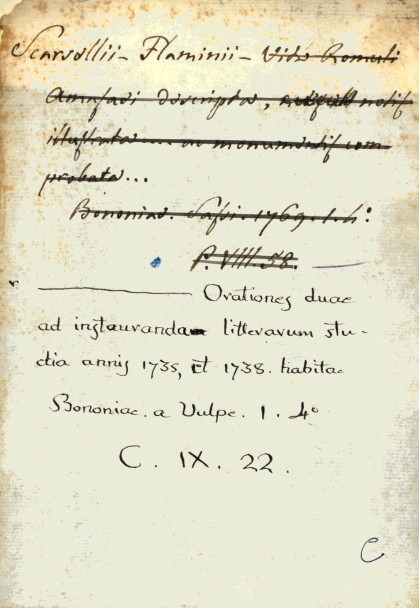 Scarsellii - Flaminii - Vita Romuli
Amasaei descripta, notis
illustrata ... ac monumentis com
probata...
Bononiae. Sassi. 1769. 1. 4°
P. VIII. 58.
Orationes duae
ad instaurandam litterarum stu-
dia annis 1735, et 1738. habitae
Bononiae. a Vulpe. 1. 4°
C. IX. 22.
C